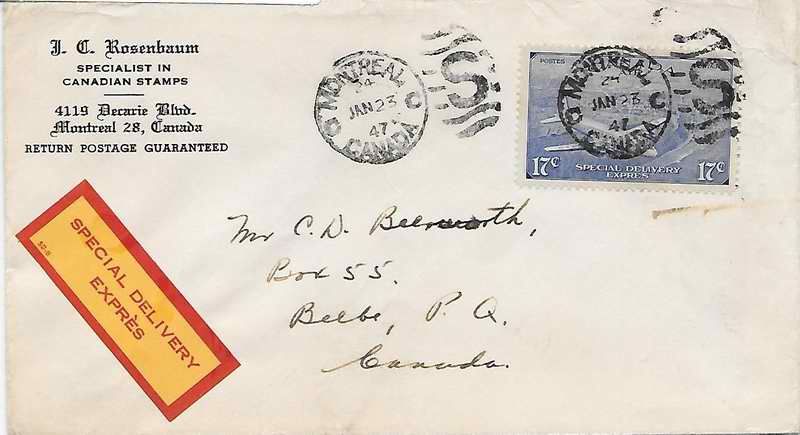 J. C. Rosenbaum
SPECIALIST IN
CANADIAN STAMPS
4119 Decarie Blvd.
Montreal 28, Canada
RETURN POSTAGE GUARANTEED
MONTREAL C
24
JAN 23
47
CANADA
S
POSTES
MONTREAL C
24
JAN 23
47
CANADA
S
17¢ SPECIAL DELIVERY 17¢
EXPRES
SPECIAL DELIVERY
EXPRÈS
Mr C. D.
Box 55.
Beebe, P. Q.
Canada.